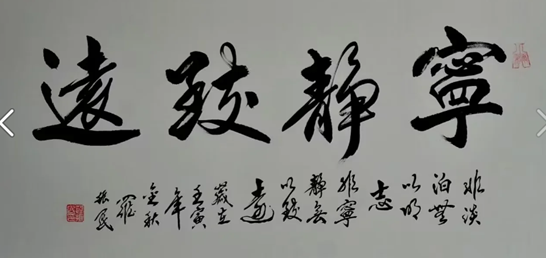 寧靜致遠
非淡
泊無
以明
志
非寧
靜無
以致
遠
歲在
壬寅
年
金秋
羅
振民